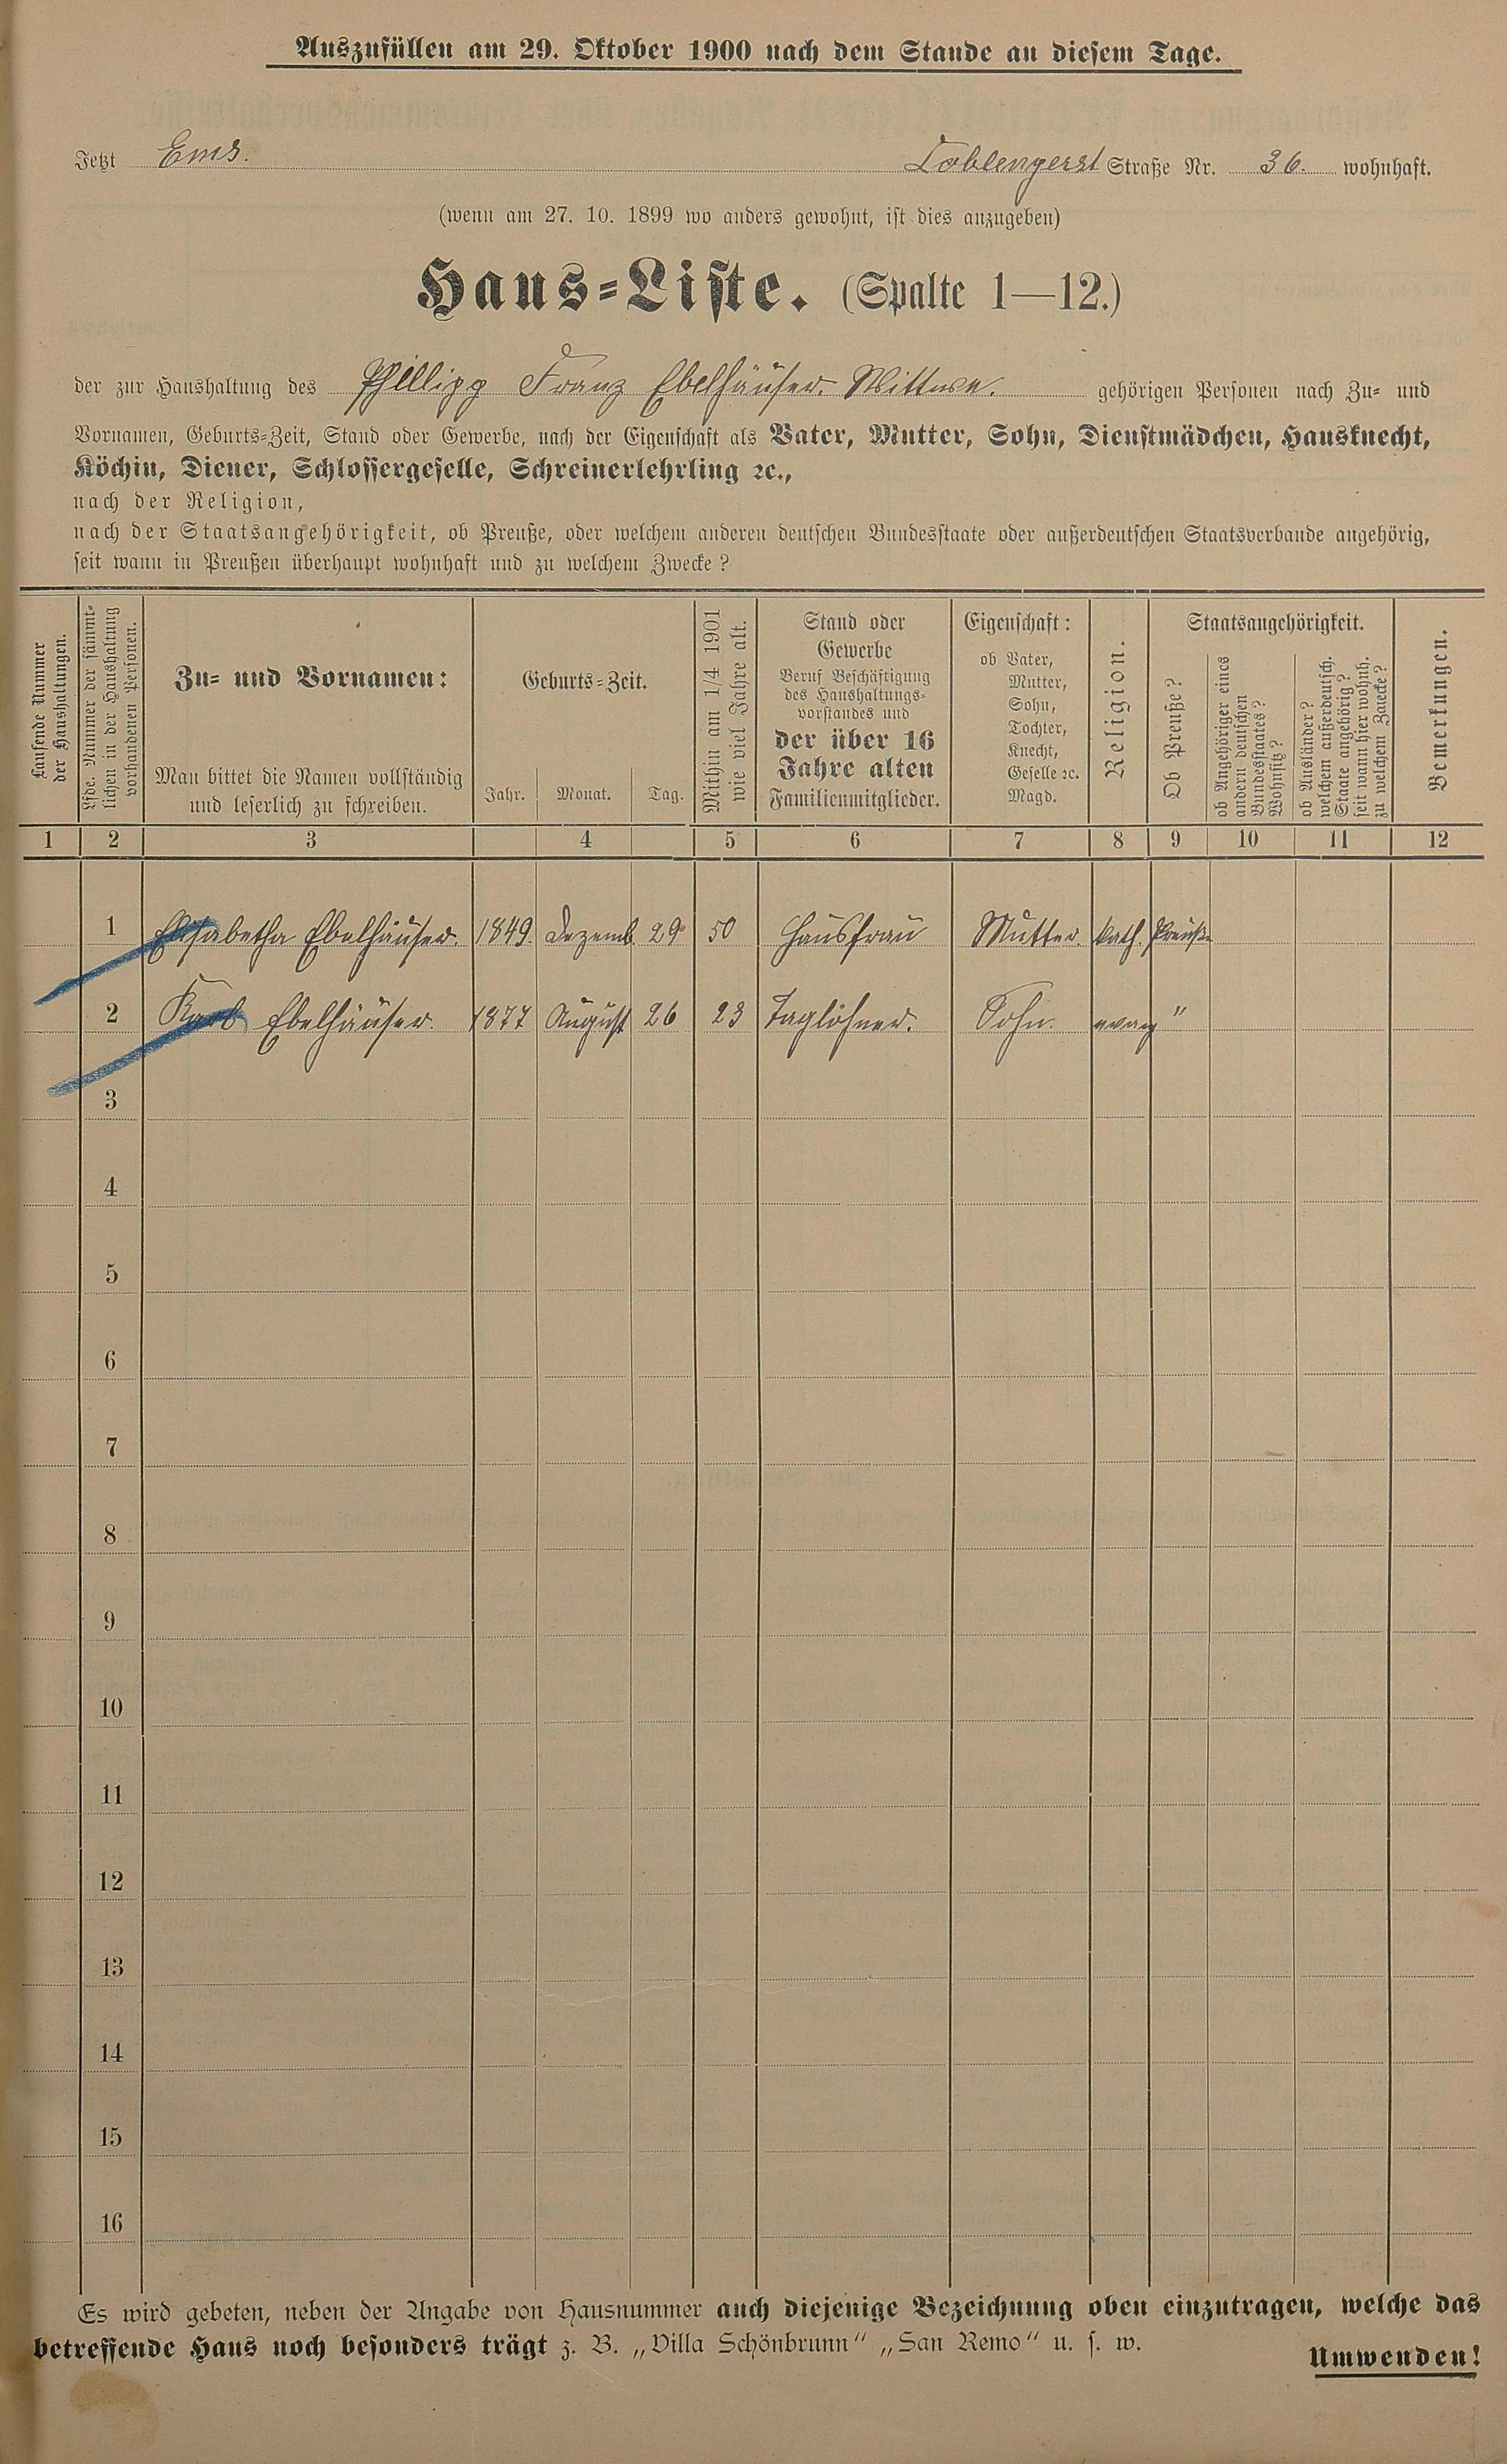 Auszufüllen am 29. Oktober 1900 nach dem Stande an diesem Tage.
Jetzt Ems. Coblengerst Straße Nr. 36. wohnhaft.
(wenn am 27. 10. 1899 wo anders gewohnt, ist dies anzugeben)
Haus-Liste. (Spalte 1—12.)
der zur Haushaltung des Phillipp Franz Ebelhäuser. Wittwe. gehörigen Personen nach Zu- und
Vornamen, Geburts-Zeit, Stand oder Gewerbe, nach der Eigenschaft als Vater, Mutter, Sohn, Dienstmädchen, Hausknecht,
Köchin, Diener, Schlossergeselle, Schreinerlehrling ꝛc.,
nach der Religion,
nach der Staatsangehörigkeit, ob Preuße, oder welchem anderen deutschen Bundesstaate oder außerdeutschen Staatsverbande angehörig,
seit wann in Preußen überhaupt wohnhaft und zu welchem Zwecke?
Laufende Nummer
der Haushaltungen.
Lfde. Nummer der sämmt-
lichen in der Haushaltung
vorhandenen Personen.
Zu- und Vornamen:
Man bittet die Namen vollständig
und leserlich zu schreiben.
Geburts-Zeit.
Jahr. Monat. Tag.
Mithin am 1/4 1901
wie viel Jahre alt.
Stand oder
Gewerbe
Beruf Beschäftigung
des Haushaltungs-
vorstandes und
der über 16
Jahre alten
Familienmitglieder.
Eigenschaft:
ob Vater,
Mutter,
Sohn,
Tochter,
Knecht,
Geselle ꝛc.
Magd.
Religion.
Staatsangehörigkeit.
Ob Preuße?
ob Angehöriger eines
andern deutschen
Bundesstaates?
Wohnsitz?
ob Ausländer?
welchem außerdeutsch.
Staate angehörig?
seit wann hier wohnh.
zu welchem Zwecke?
Bemerkungen.
1 2 3 4 5 6 7 8 9 10 11 12
1 Elisabetha Ebelhäuser. 1849. Dezemb. 29 50 Hausfrau Mutter. kath. Preuße
2 Karl Ebelhäuser. 1877 August 26 23 Taglöhner. Sohn. evang "
3
4
5
6
7
8
9
10
11
12
13
14
15
16
Es wird gebeten, neben der Angabe von Hausnummer auch diejenige Bezeichnung oben einzutragen, welche das
betreffende Haus noch besonders trägt z. B. „Villa Schönbrunn“ „San Remo“ u. s. w.
Umwenden!